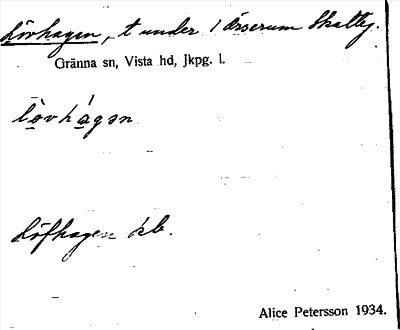 Lövhagen, t under 1 Örserum Skattg.
Gränna sn, Vista hd, Jkpg. l.
lövhagən
Löfhagen kb.
Alice Petersson 1934.